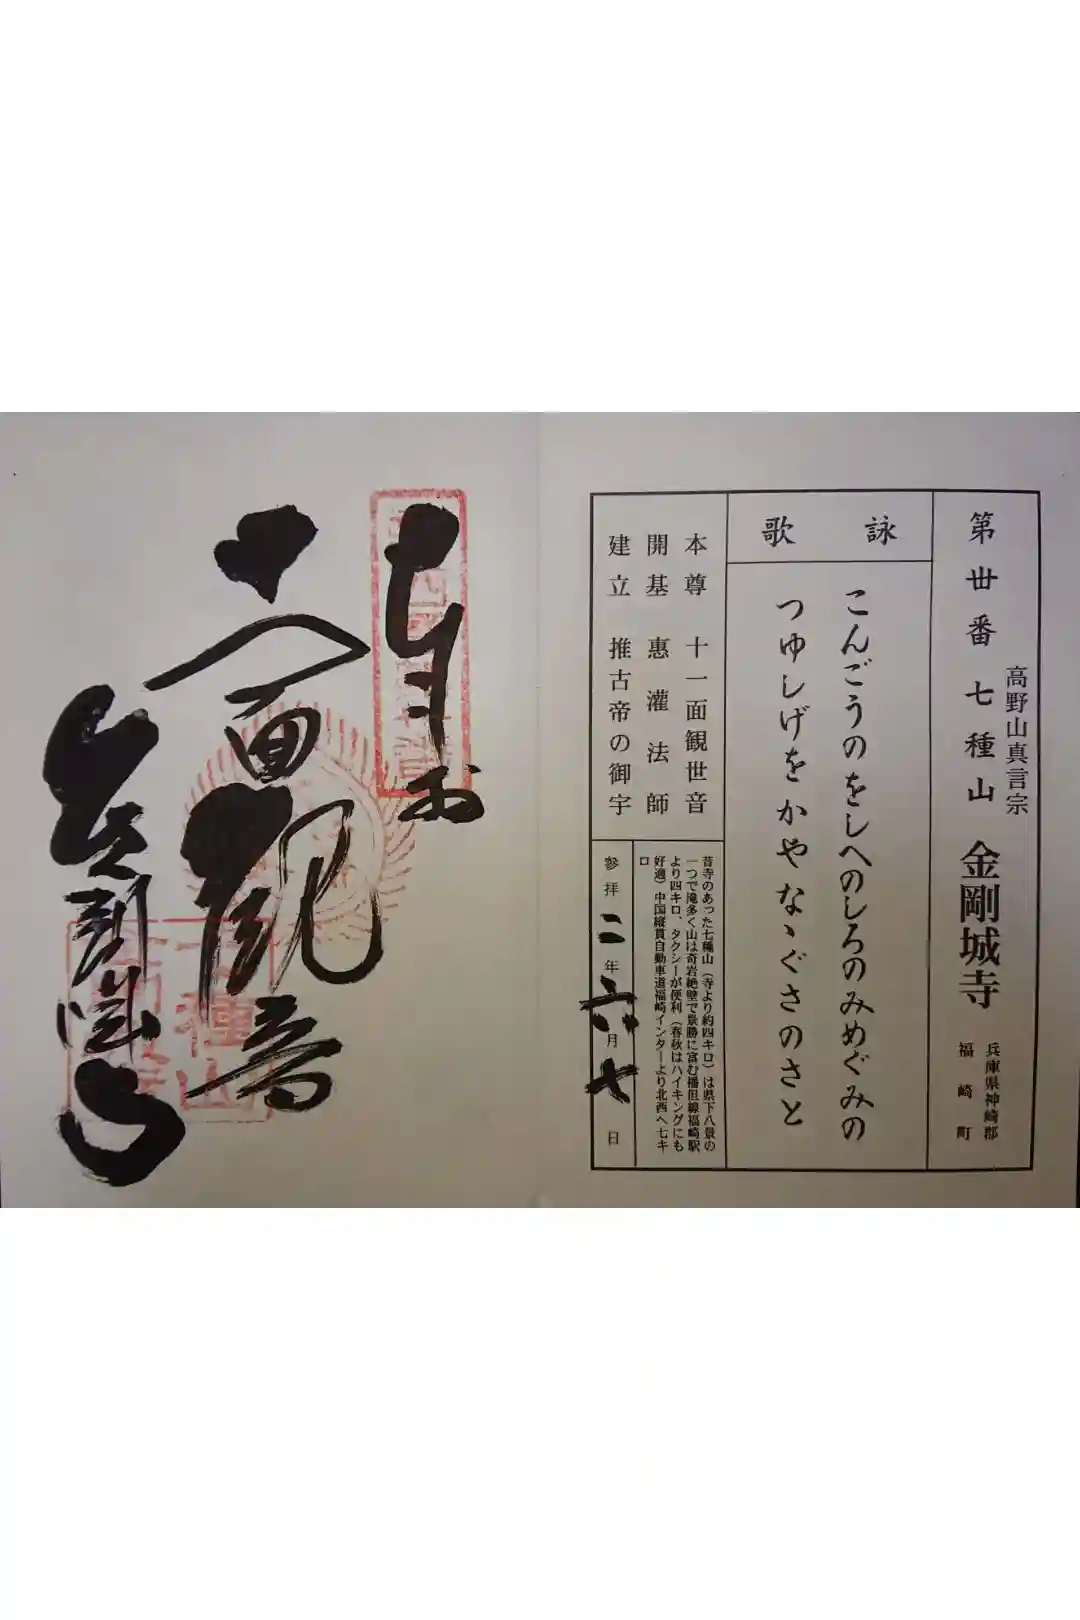 高野山真言宗
第丗番 七種山 金剛城寺
兵庫県神崎郡
福崎町
詠歌
こんごうのをしへのしろのみめぐみの
つゆしげをかやなゝぐさのさと
本尊 十一面観世音
開基 惠灌法師
建立 推古帝の御宇
昔寺のあった七種山（寺より約四キロ）は県下八景の
一つで滝多く山は奇岩絶壁で景勝に富む播但線福崎駅
より四キロ、タクシーが便利（春秋はハイキングにも
好適）中国縦貫自動車道福崎インターより北西へ七キ
ロ
参拝 二年 六月 七日
十一面観音
金剛城寺